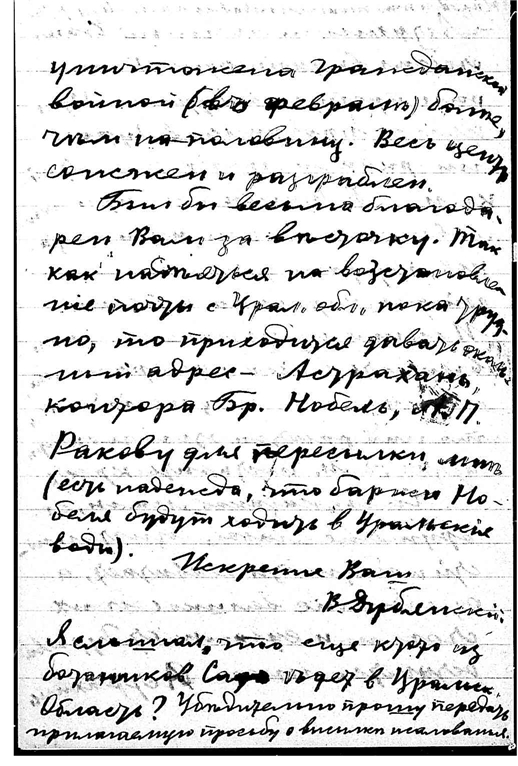 уничтожена гражданской
войной (въ февралѣ) болѣе,
чѣмъ на половину. Весь центръ
сожженъ и разграбленъ.
Былъ бы весьма благода-
ренъ Вамъ за вѣсточку. Такъ
какъ надѣяться на возстановле-
ніе почты с Урал. обл. пока труд-
но, то приходится давать
адрес – Астрахань,
контора Бр. Нобель, А. П.
Ракову для пересылки мнѣ
(есть надежда, что баржи Но-
беля будут ходить в Уральскіе
воды).
Искренне Вашъ
В. Дубянский.
Я слышал, что еще кто-то из
ботаников Сада ѣдет в Уральск.
Область? Убедительно прошу передать
прилагаемую просьбу о высылкѣ жалованья.